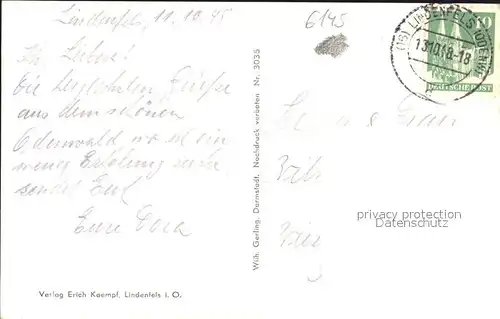 Lindenfels, 11.10.45
6145
Ihr Lieben!
Die herzlichsten Grüße
aus dem schönen
Odenwald wo ich ein
wenig Erholung suche
sendet Euch
Eure Dora
(16) LINDENFELS (ODENW)
13.10.48-18
10
DEUTSCHE POST
Wilh. Gerling, Darmstadt. Nachdruck verboten Nr. 3035
privacy protection
Datenschutz
Verlag Erich Kaempf, Lindenfels i. O.